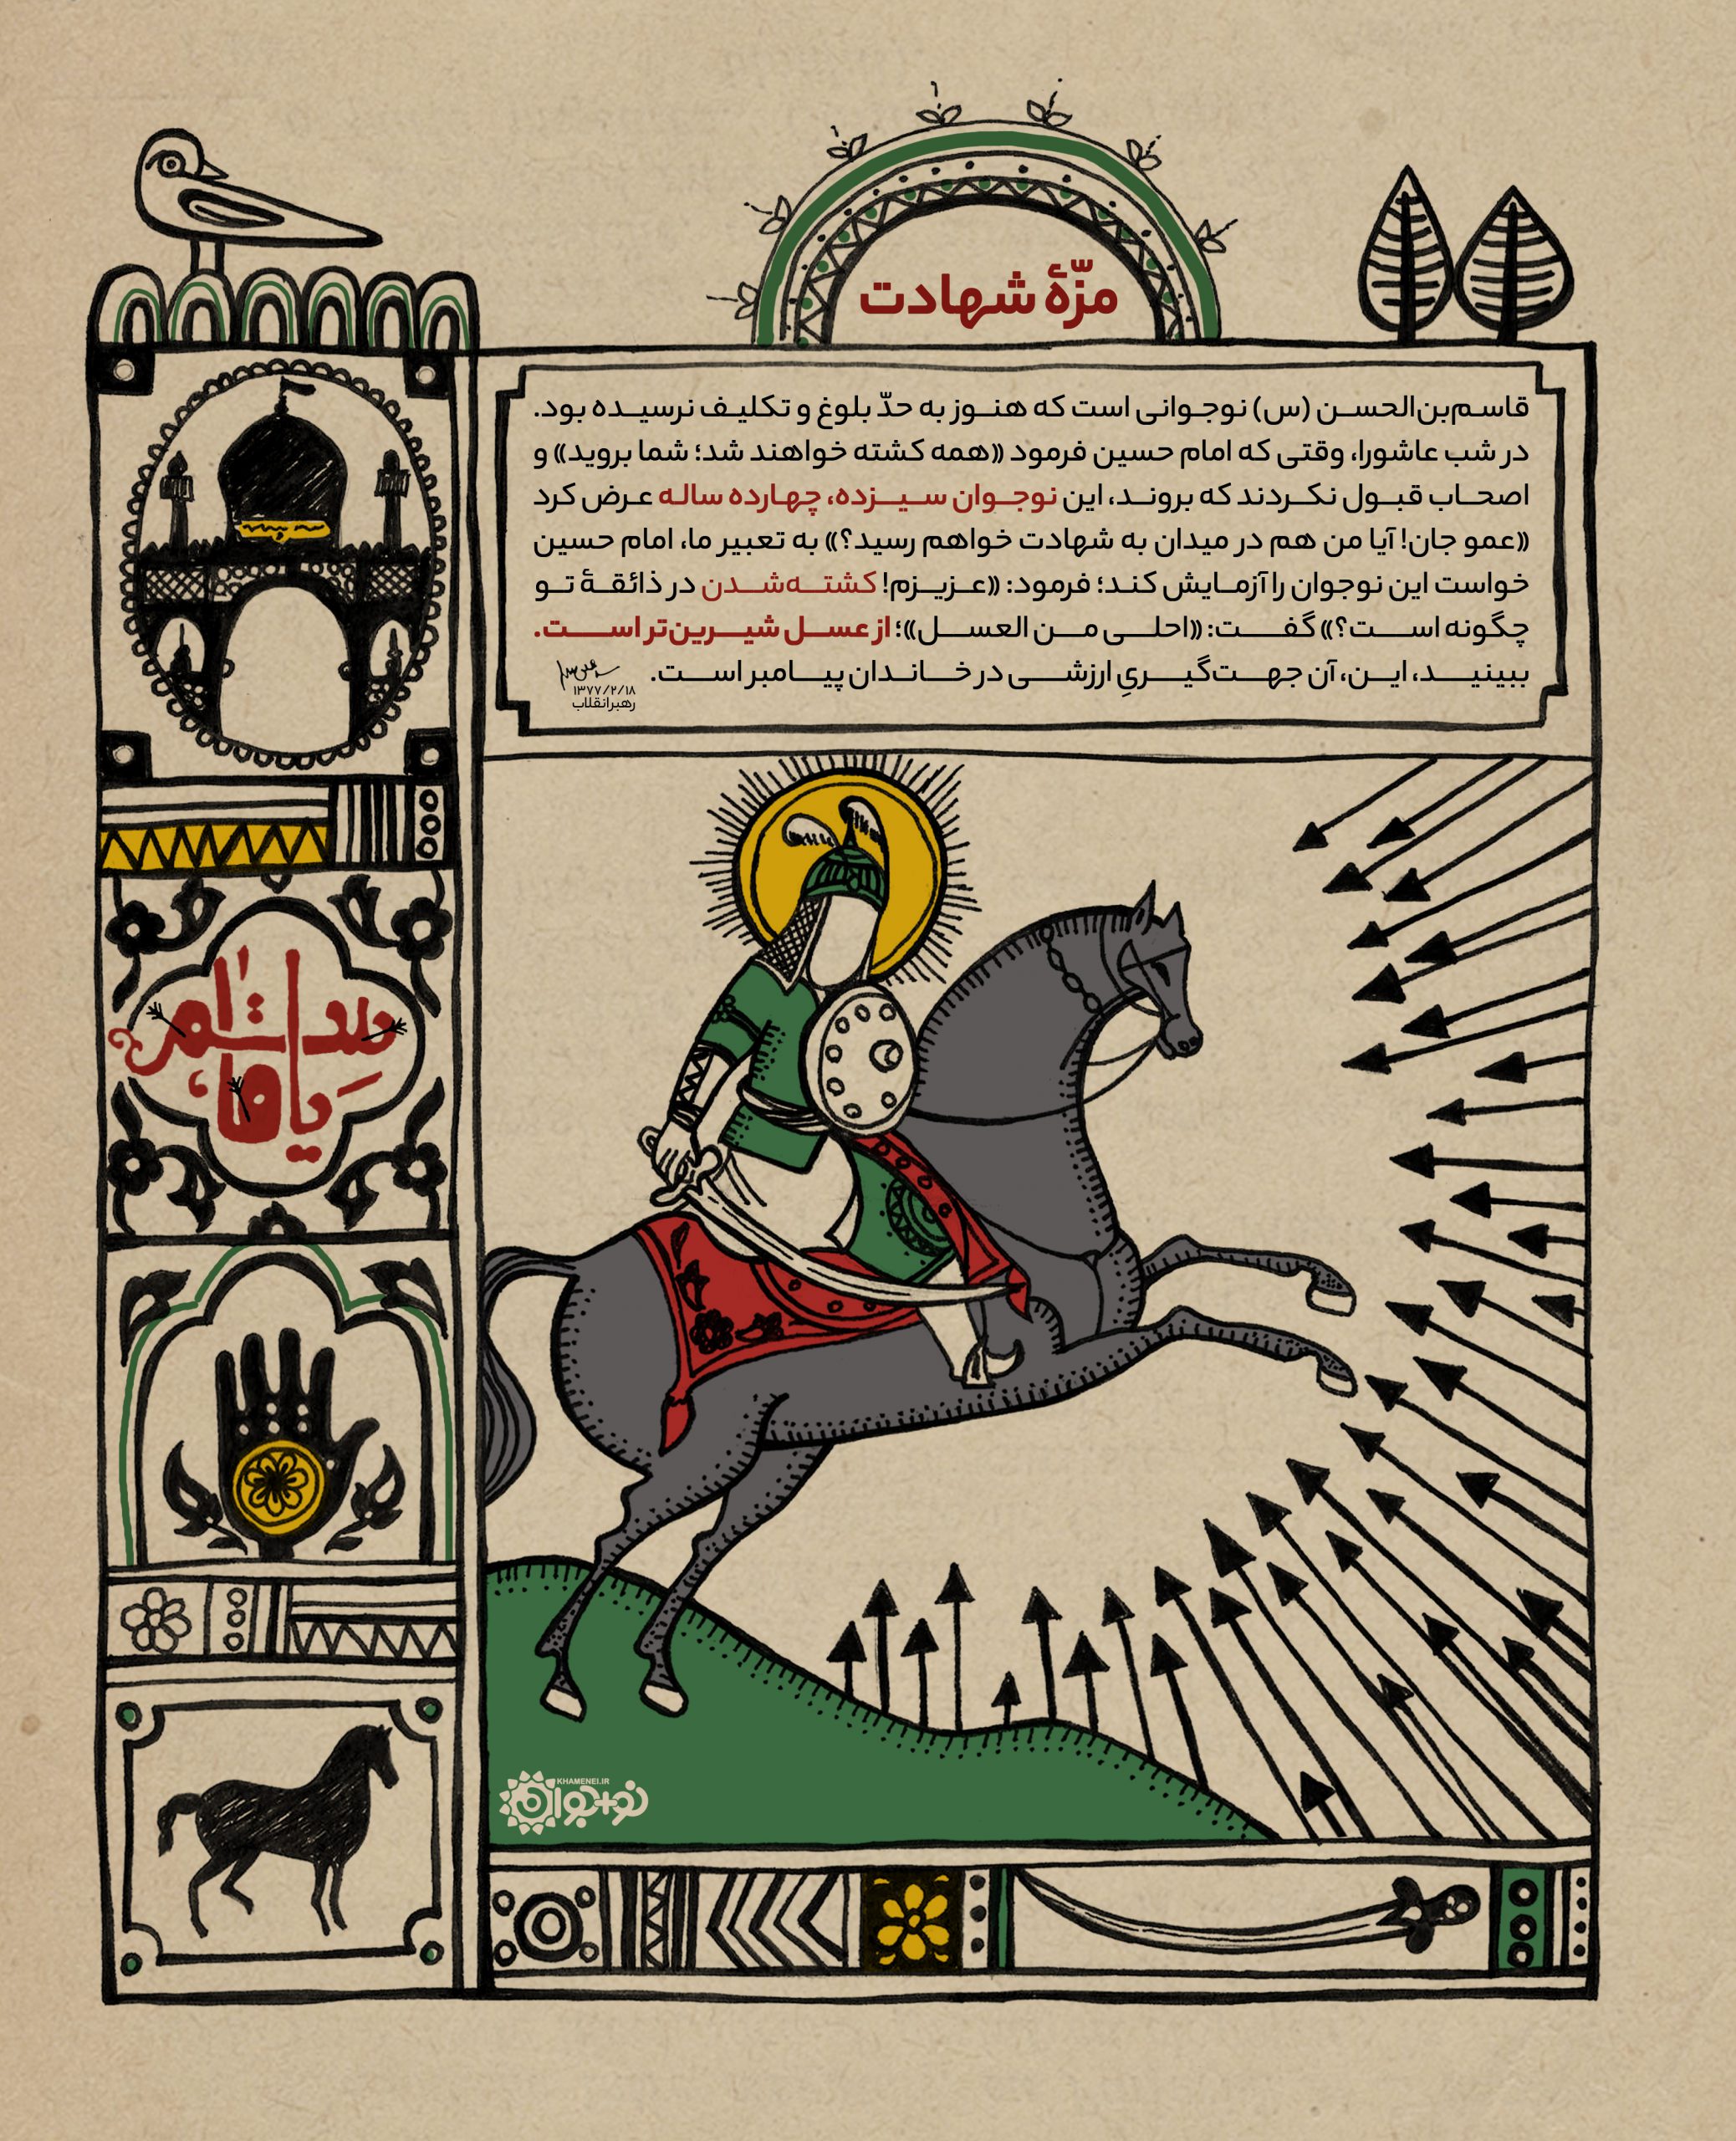 مزّهٔ شهادت
قاسم‌بن‌الحسن (س) نوجوانی است که هنوز به حدّ بلوغ و تکلیف نرسیده بود.
در شب عاشورا، وقتی که امام حسین فرمود «همه کشته خواهند شد؛ شما بروید» و
اصحاب قبول نکردند که بروند، این نوجوان سیزده، چهارده ساله عرض کرد
«عمو جان! آیا من هم در میدان به شهادت خواهم رسید؟» به تعبیر ما، امام حسین
خواست این نوجوان را آزمایش کند؛ فرمود: «عزیزم! کشته‌شدن در ذائقهٔ تو
چگونه است؟» گفت: «احلی من العسل»؛ از عسل شیرین‌تر است.
ببینید، این، آن جهت‌گیریِ ارزشی در خاندان پیامبر است.
۱۳۷۷/۲/۱۸
رهبر انقلاب
KHAMENEI.IR
نو+جوان